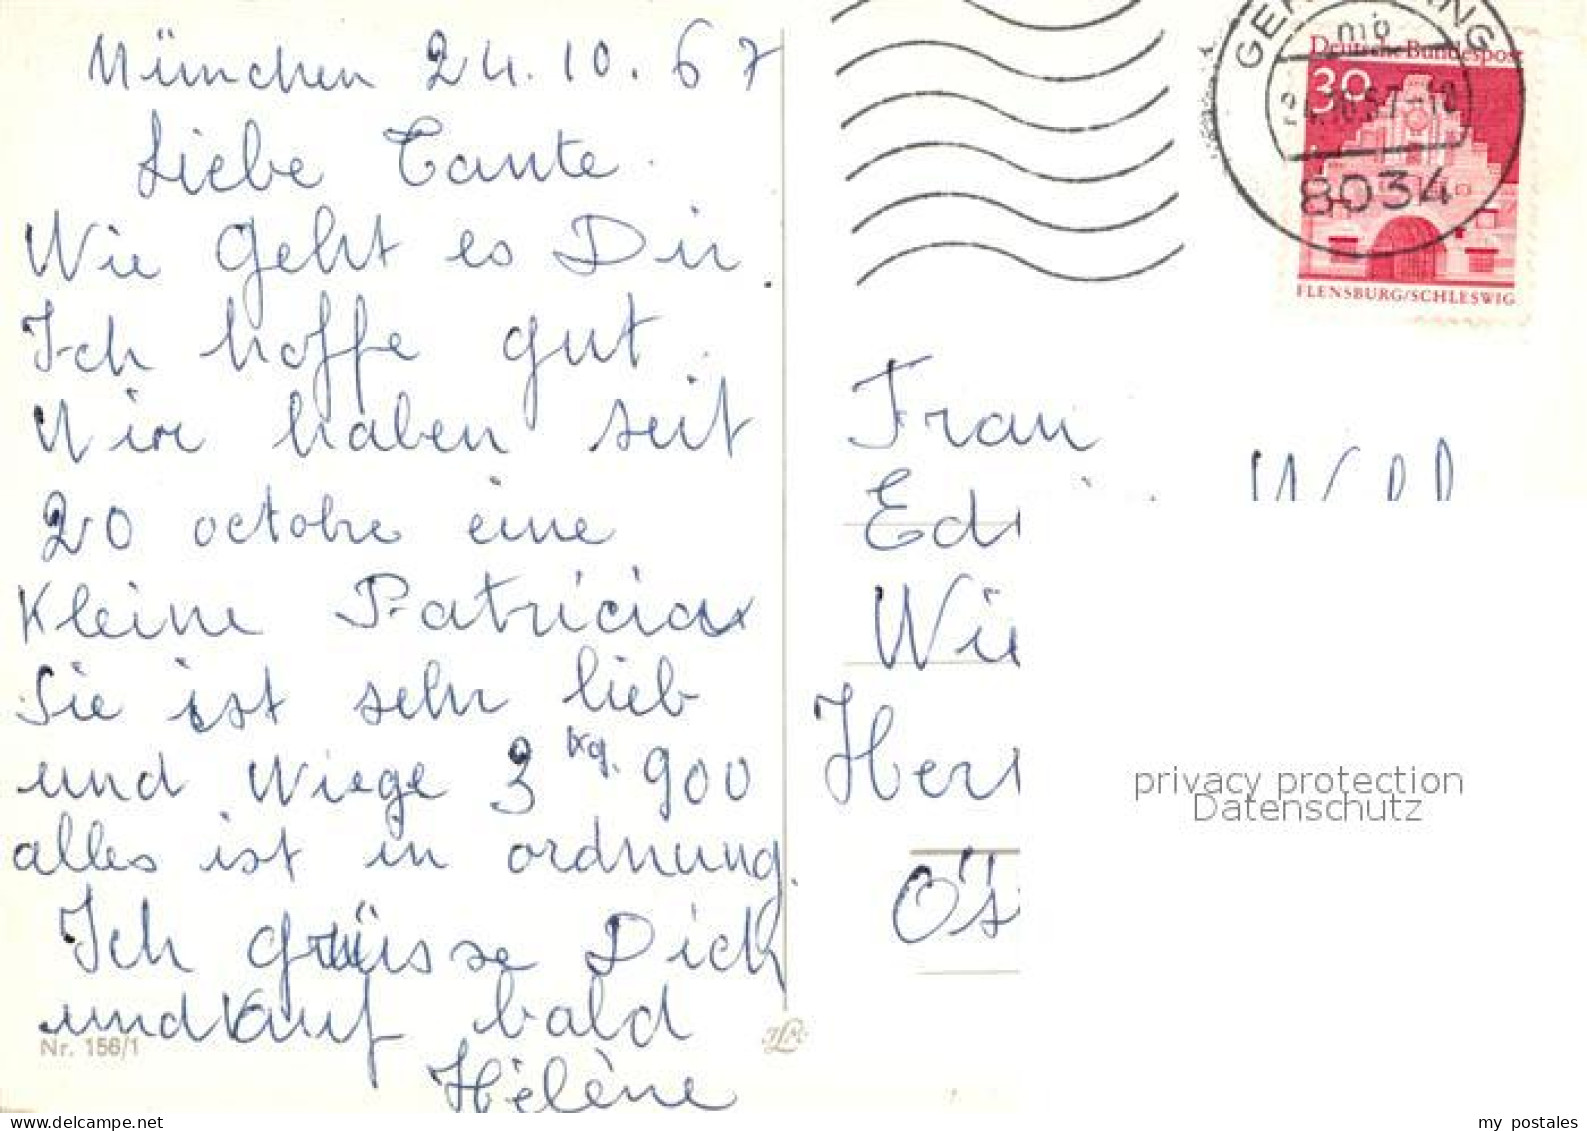 München 24.10.67
Liebe Tante.
Wie geht es Dir.
Ich hoffe gut.
Wir haben seit
20 octobre eine
Kleine Patricia
Sie ist sehr lieb
und Wiege 3 kg. 900
alles ist in ordnung.
Ich grüsse Dich
und auf bald
Hélène
Nr. 156/1
Deutsche Bundespost
30
8034
FLENSBURG/SCHLESWIG
Frau
privacy protection
Datenschutz
www.delcampe.net
my_postales